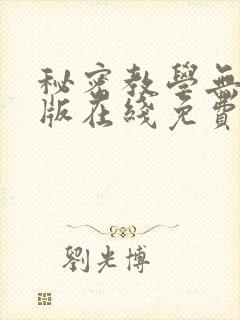 秘密教學無
版在綫免費
劉光博